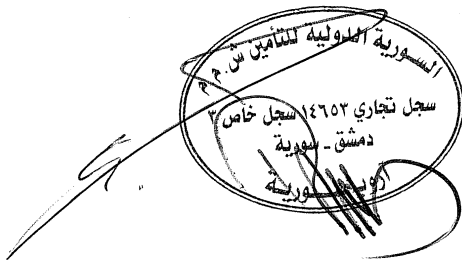 السورية الدولية للتأمين ش.م.م
سجل تجاري ١٤٦٥٣ سجل خاص ٣
دمشق - سورية